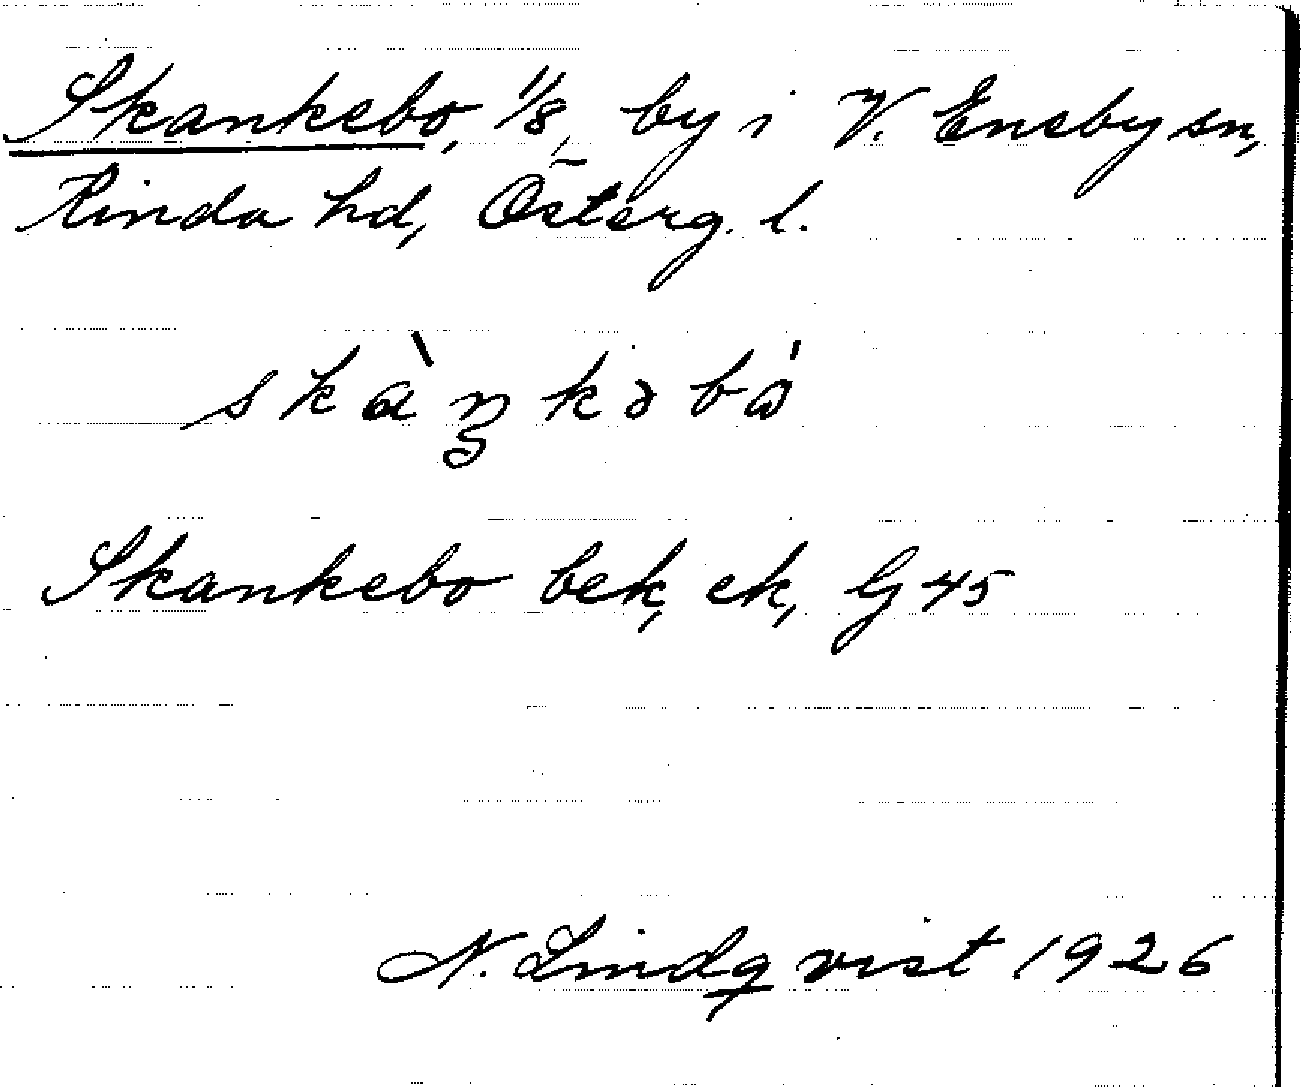 Skankebo, 1/8, by i V. Eneby sn,
Kinda hd, Österg. l.
skàŋkəbò
Skankebo bek, ek, Lj 45
N. Lindqvist 1926